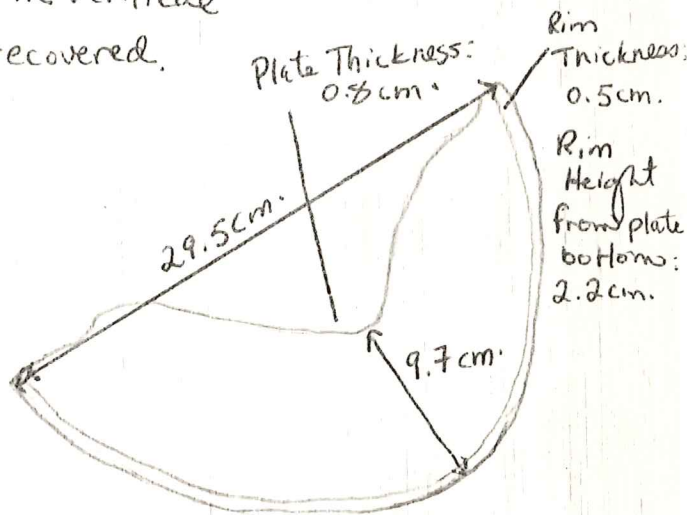 recovered.
Plate Thickness:
0.8cm.
Rim
Thickness:
0.5cm.
Rim
Height
from plate
bottom:
2.2cm.
29.5cm.
9.7cm.